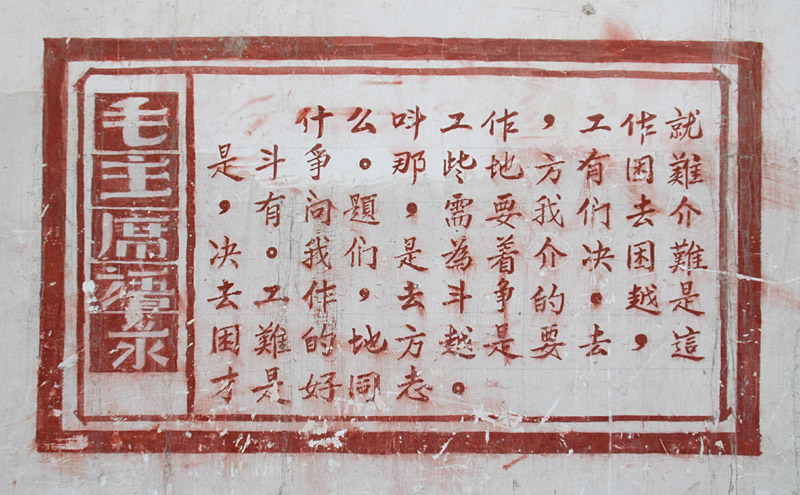 毛主席語录
什么叫工作，工作就
是斗争。那些地方有困難
，有问題，需要我们去介
决。我们是為着介决困難
去工作，去斗争的。越是
困難的地方越是要去，這
才是好同志。